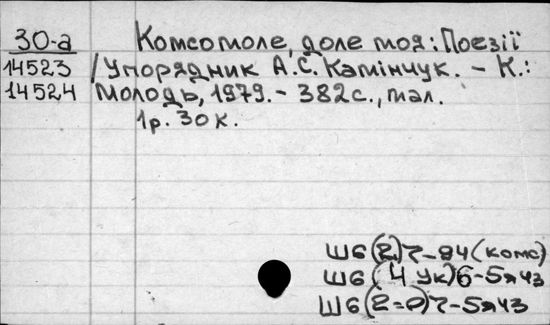 30-а Комсомоле, доле моя: Поезії
14523 /Упорядник А.С. Камінчук. - К.:
14524 Молодь, 1979. - 382с., мал.
1р. 30к.
Ш6(2)7-94(комс)
Ш6(4Ук)6-5я43
Ш6(2=Р)7-5я43